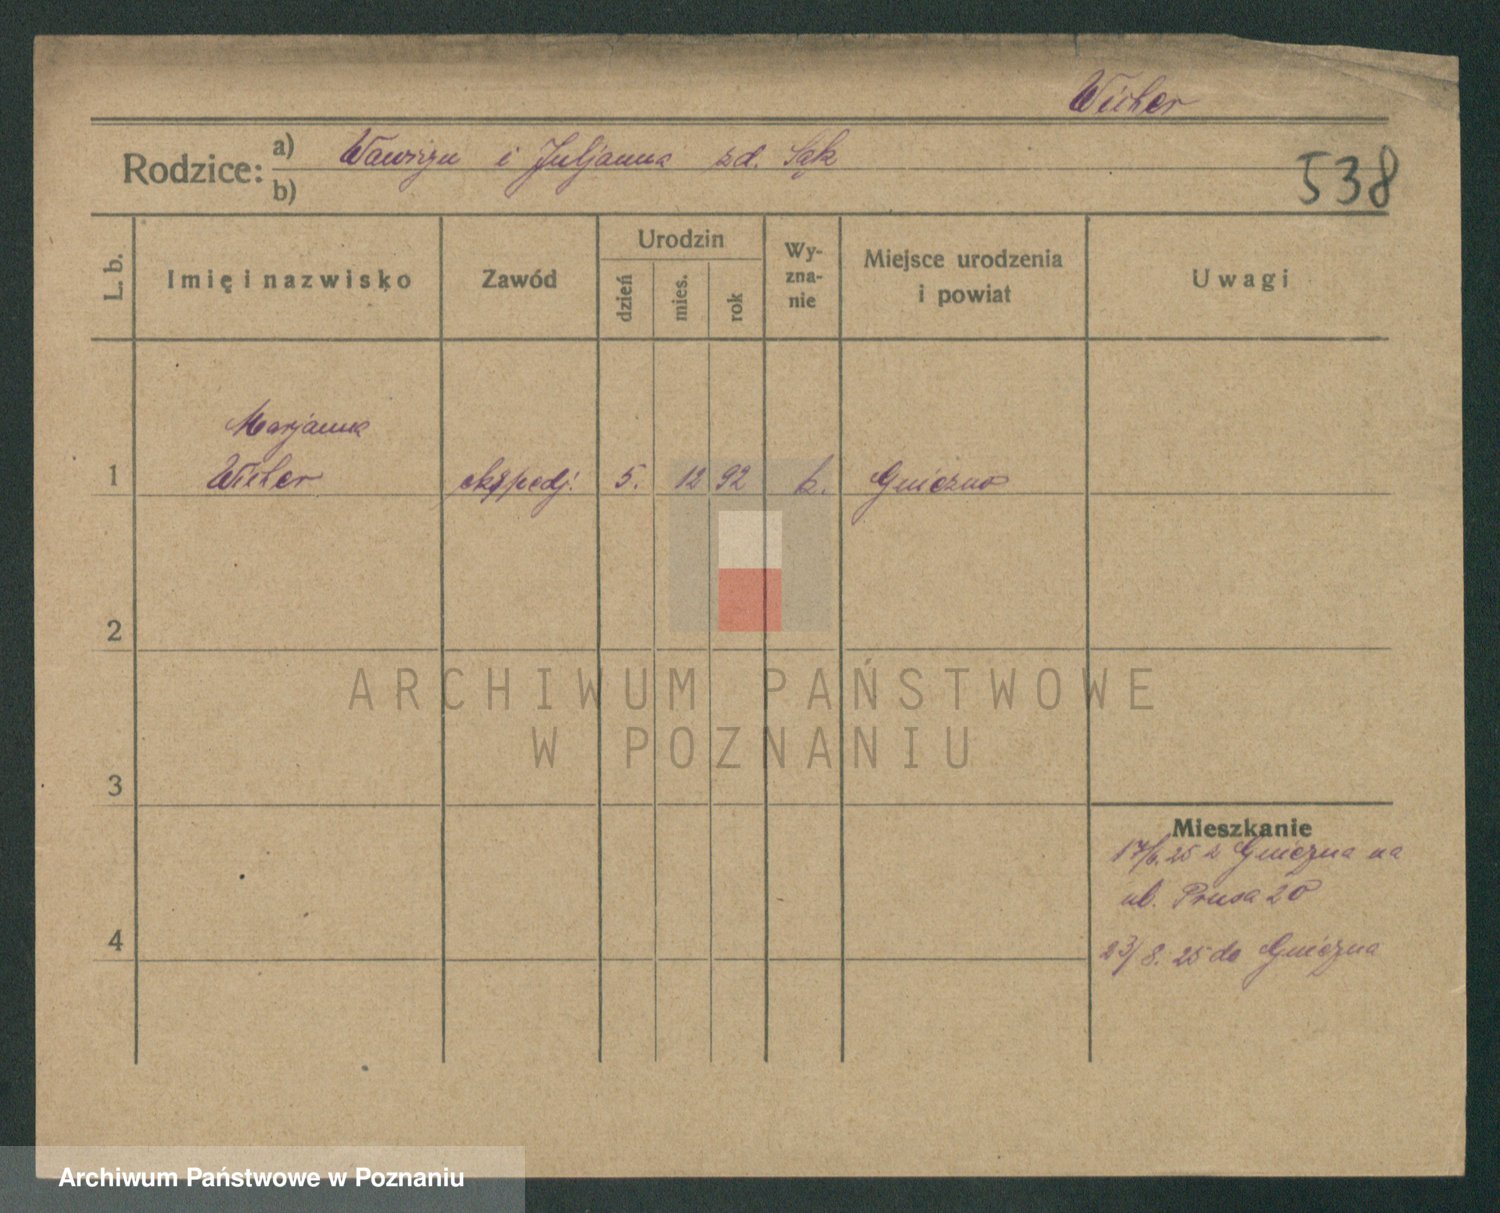 Wicher
Rodzice: a) Wawrzyn i Juljanna zd. Sąk
b)
538
L. b.
Imię i nazwisko
Zawód
Urodzin
dzień
mies.
rok
Wy-
zna-
nie
Miejsce urodzenia
i powiat
Uwagi
Marjanna
1 Wicher ekspedj. 5. 12 92 k. Gniezno
2
3
4
Mieszkanie
17/6. 25 z Gniezna na
ul. Prusa 20
23/8. 25 do Gniezna
ARCHIWUM PAŃSTWOWE
W POZNANIU
Archiwum Państwowe w Poznaniu